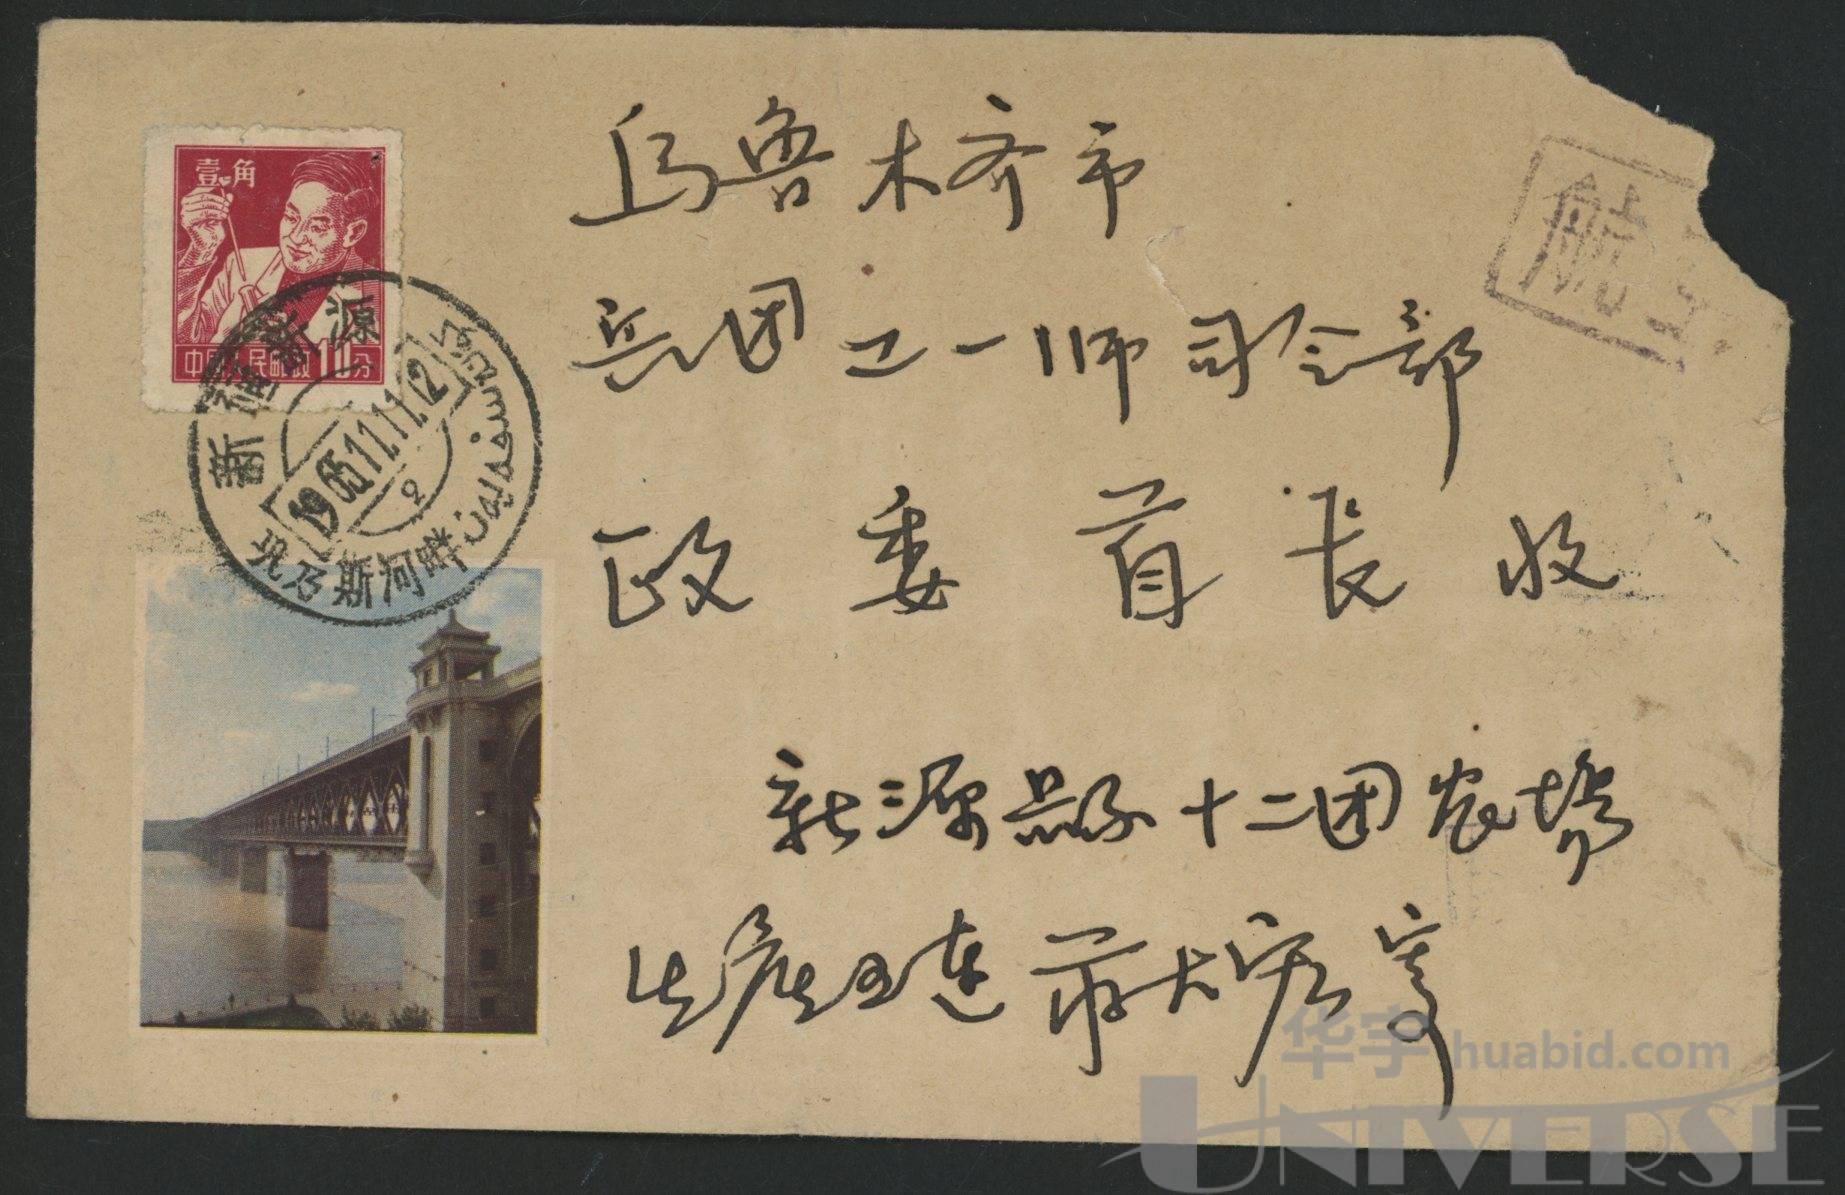 壹角
中国人民邮政 10分
新疆新源
1965.11.11.12
2
巩乃斯河畔
航空
乌鲁木齐市
兵团工一师司令部
政委首长收
新源县十二团农场
生产五连
华宇 huabid.com
UNIVERSE